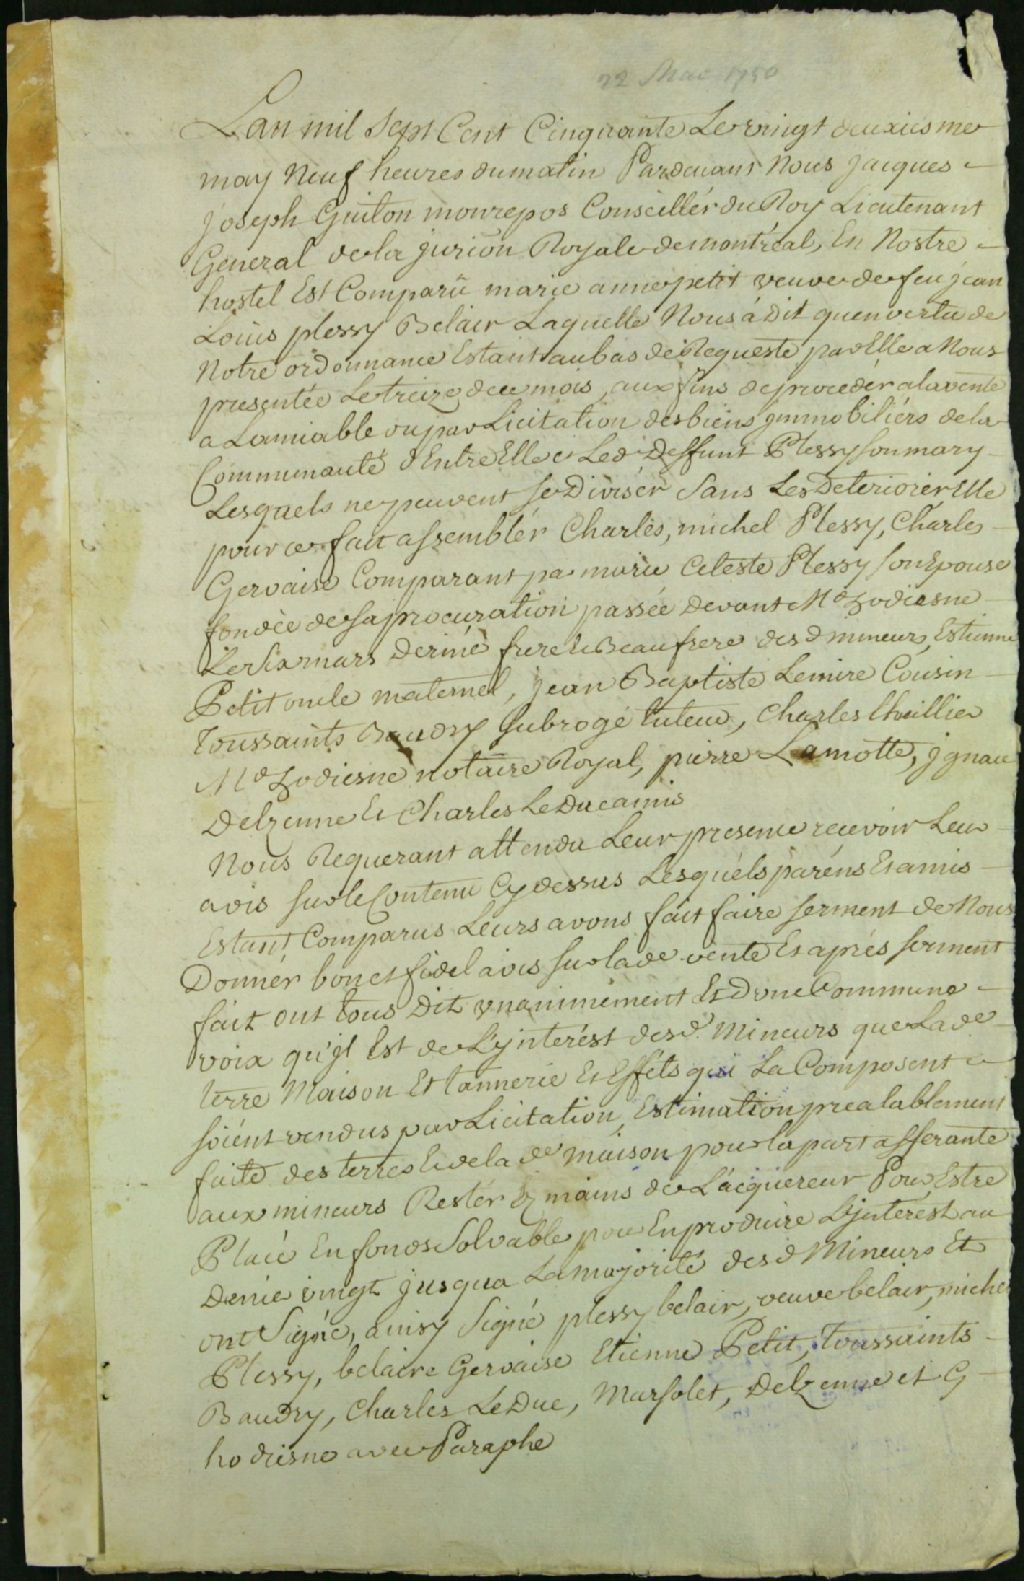 22 Mai 1750
Lan mil Sept Cent Cinquante Le vingt deuxiesme
may Neuf heures du matin Pardevant Nous Jacques
joseph Guiton monrepos Conseillér du Roy Lieutenant
General de la juri͠on Royale de montréal, En Nostre
hostel Est Comparüe marie anne petit veuve de feu jean
Loüis plessy Belair Laquelle Nous á Dit quen vertu de
Notre ordonnance Estant au bas de Requeste par Elle a Nous
presentée Le treize de ce mois, aux fins de procedér a la vente
a Lamiable ou par Licitation des biens jmmobiliérs de la
Communauté d'Entre Elle et Led Deffunt Plessy son mary
Lesquels ne peuvent se Divisér Sans Les Deteriorér Elle
pour ce fait assemblér Charles, michel Plessy, Charles
Gervaise Comparant par marie Celeste Plessy son Epouse
fondée de sa procuration passée Devant Me hodiesne
Le six mars dernié frere et Beaufrere des d mineurs, Estienne
Petit oncle maternel, jean Baptiste Lemire Cousin
Toussaints Baudry Subrogé tuteur, Charles Lhuillier
Me hodiesne notaire Royal, pierre Lamotte, jgnace
Delzenne Et Charles Le Duc amis
Nous Requerant attendu Leur presence recevoir Leur
avis sur le Contenu Cy dessus Lesquéls paréns Et amis
Estant Comparus Leurs avons fait faire serment de Nous
Donnér bon et fidel avis sur lad.e vente Et aprés serment
fait ont tous Dit vnanimément Et D'une Commune
voix qu'jl Est de L'jnterést des d. Mineurs que Lade
terre Maison Et tannerie Et Efféts qui La Composent
soiént vendus par Licitation, Estimation prealablement
faite des terres Et de la de maison pour la part afferante
aux mineurs Restér Ez mains de L'acquereur Pour Estre
Placé En fonds Solvable pour En produire L'jnterest au
Denié vingt jusqua La majorité des d Mineurs Et
ont Signé, ainsy Signé plessy belair, veuve belair, michel
Plessy, belaire Gervaise Etienne Petit, Toussaints
Baudry, Charles Le Duc, Marsolet, Delzenne et G
hodiesne avec Paraphe